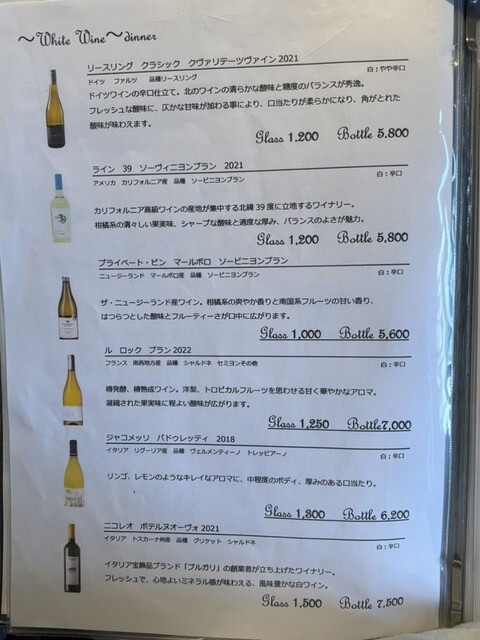 ～White Wine～dinner
リースリング クラシック クヴァリテーツヴァイン 2021
ドイツ ファルツ 品種リースリング 白：やや辛口
ドイツワインの辛口仕立て。北のワインの清らかな酸味と糖度のバランスが秀逸。
フレッシュな酸味に、仄かな甘味が加わる事により、口当たりが柔らかになり、角がとれた
酸味が味わえます。
Glass 1,200 Bottle 5,800
ライン 39 ソーヴィニヨンブラン 2021
アメリカ カリフォルニア産 品種 ソービニヨンブラン 白：辛口
カリフォルニア高級ワインの産地が集中する北緯 39 度に立地するワイナリー。
柑橘系の清々しい果実味、シャープな酸味と適度な厚み、バランスのよさが魅力。
Glass 1,200 Bottle 5,800
プライベート・ビン マールボロ ソービニヨンブラン
ニュージーランド マールボロ産 品種 ソービニヨンブラン 白：辛口
ザ・ニュージーランド産ワイン。柑橘系の爽やか香りと南国系フルーツの甘い香り、
はつらつとした酸味とフルーティーさが口中に広がります。
Glass 1,000 Bottle 5,600
ル ロック ブラン 2022
フランス 南西地方産 品種 シャルドネ セミヨンその他 白：辛口
樽発酵、樽熟成ワイン。洋梨、トロピカルフルーツを思わせる甘く華やかなアロマ。
凝縮された果実味に程よい酸味が広がります。
Glass 1,250 Bottle7,000
ジャコメッリ パドゥレッティ 2018
イタリア リグーリア産 品種 ヴェルメンティーノ トレッビアーノ 白：辛口
リンゴ、レモンのようなキレイなアロマに、中程度のボディ、厚みのある口当たり。
Glass 1,300 Bottle 6,200
ニコレオ ポデルヌオーヴォ 2021
イタリア トスカーナ州産 品種 グリケット シャルドネ 白：辛口
イタリア宝飾品ブランド「ブルガリ」の創業者が立ち上げたワイナリー。
フレッシュで、心地よいミネラル感が味わえる、風味豊かな白ワイン。
Glass 1,500 Bottle 7,500